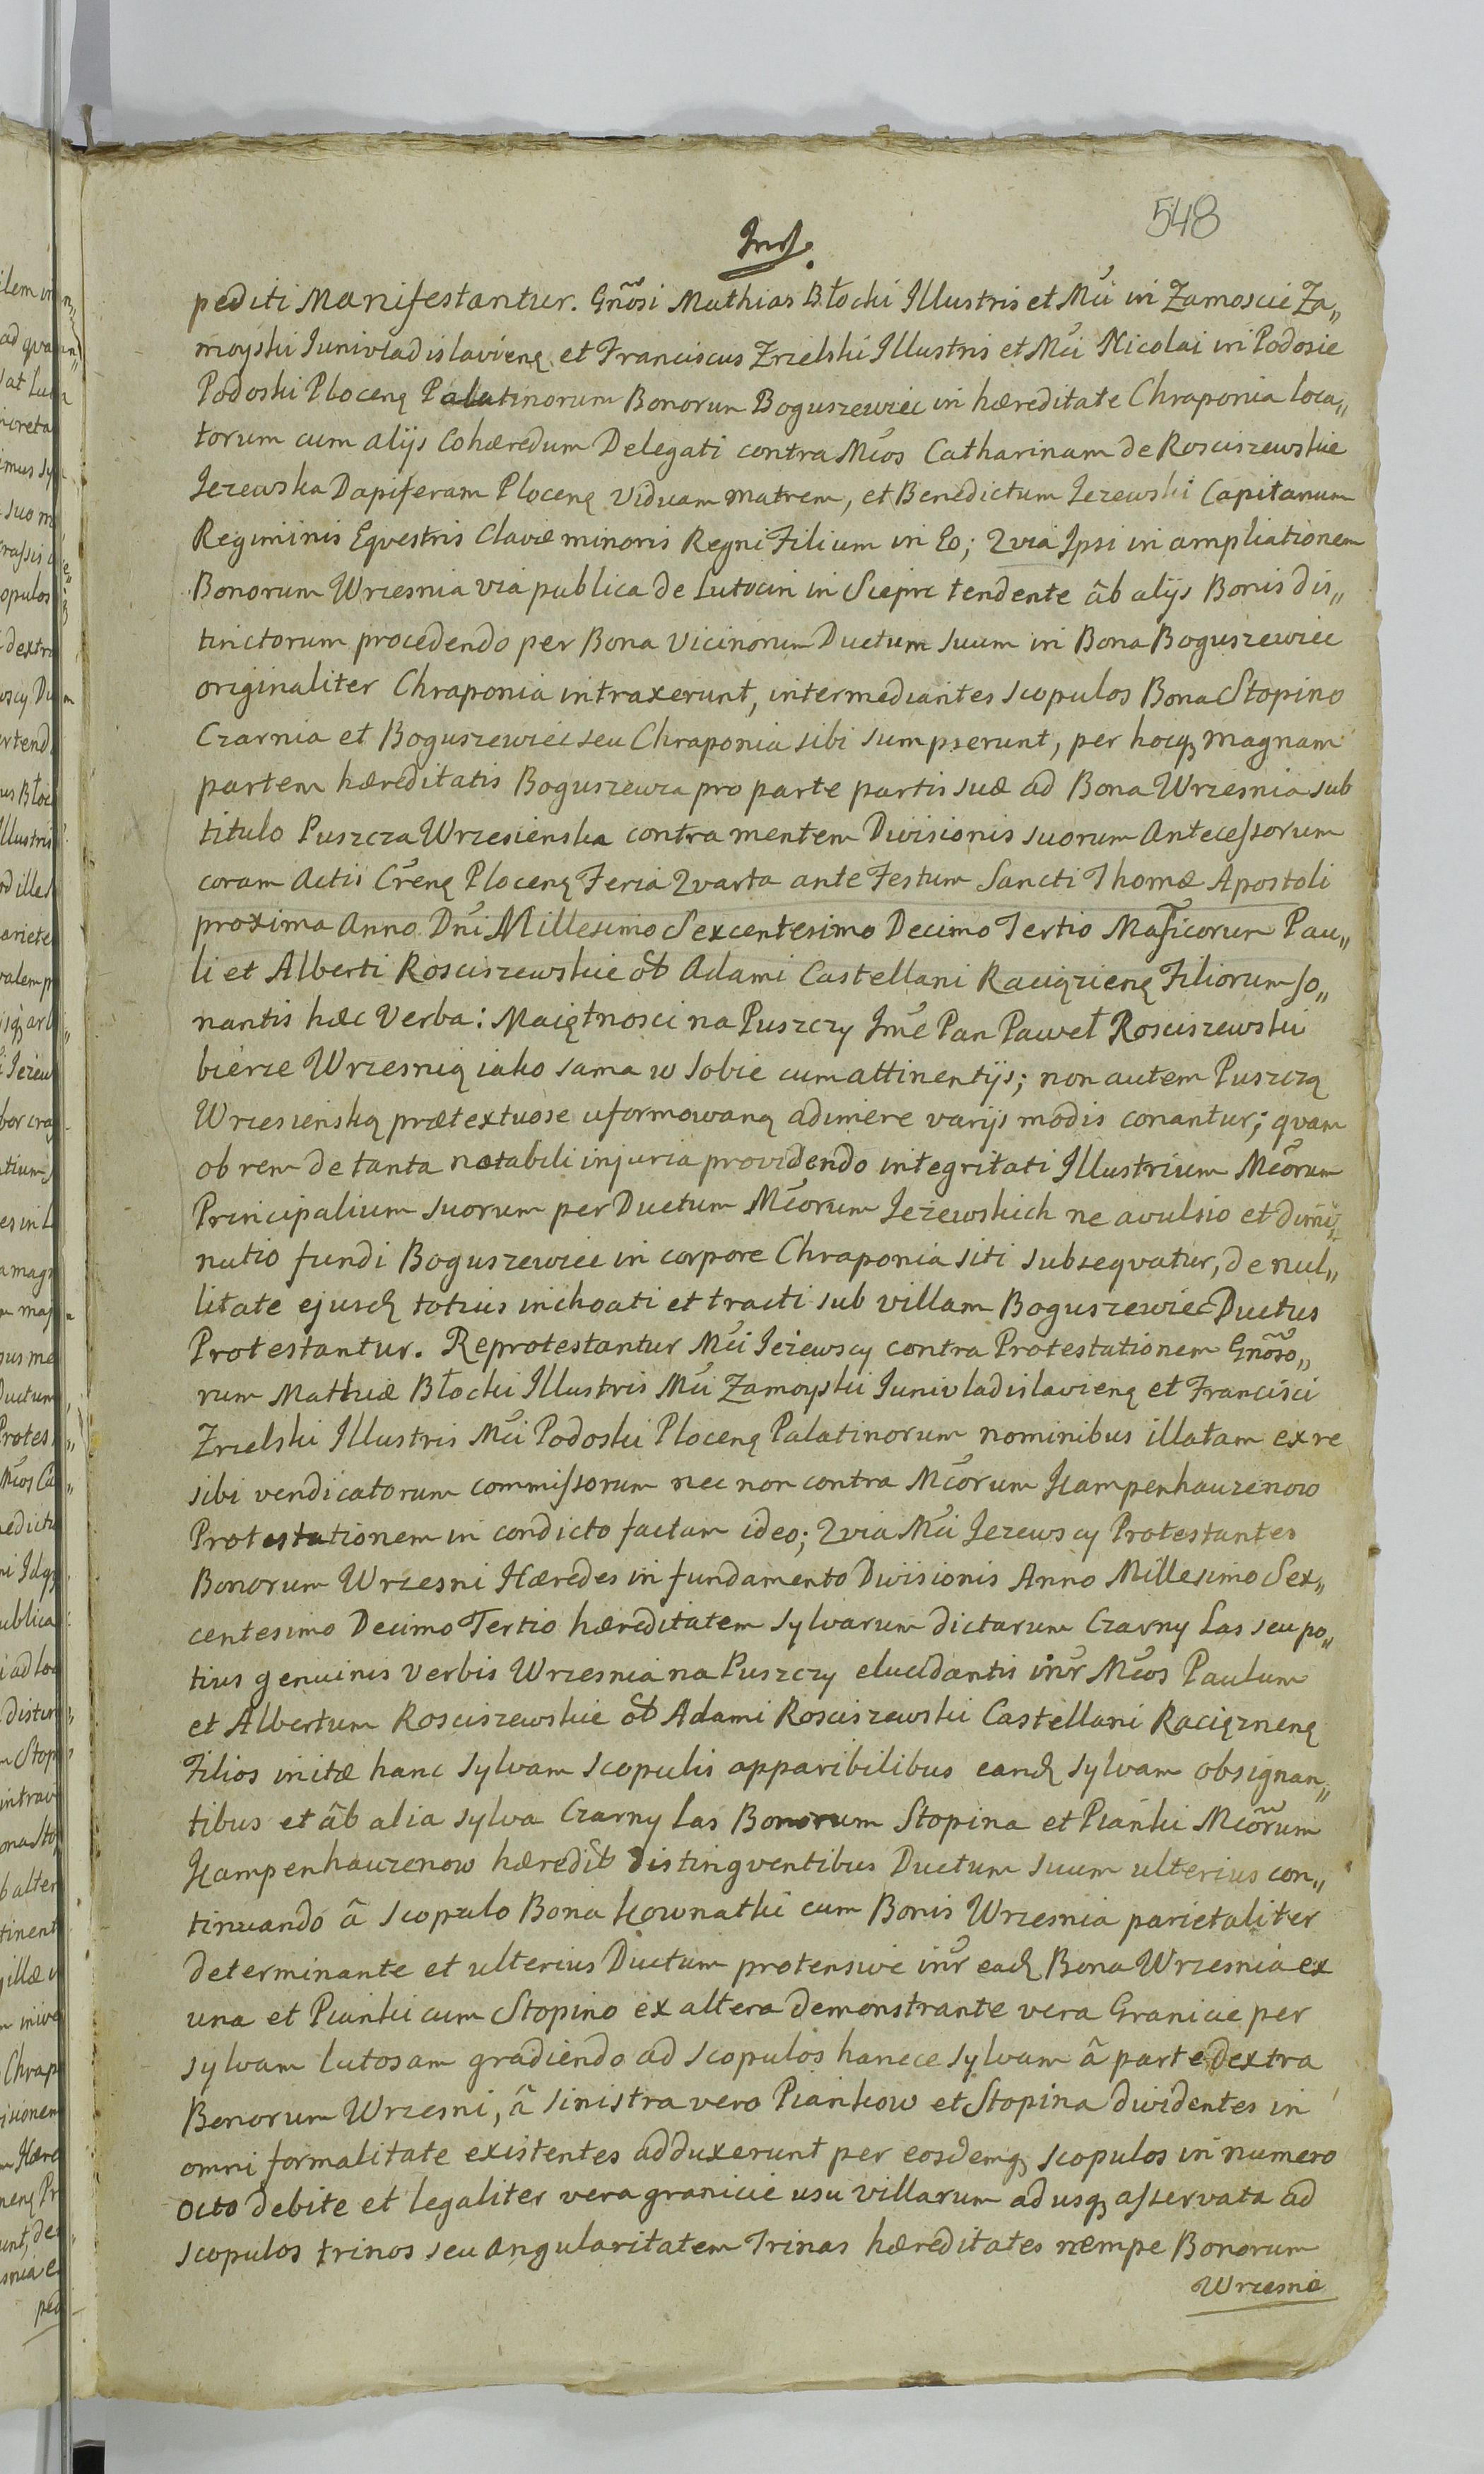 548
Ind.
pediti Manifestantur. Gnõsi Mathias Błocki Illustris et Mci in Zamoscie Za„
moyski Junivladislavienę et Franciscus Zrzelski Illustris et Mci Nicolai in Podosie
Podoski Plocenę Palatinorum Bonorum Boguszewiec in hæreditate Chraponia loca„
torum cum alijs Cohæredum Delegati contra Mcos Catharinam de Rosciszewskie
Jezewska Dapiferam Plocenę Viduam Matrem, et Benedictum Jezewski Capitanum
Regiminis Eqvestris Claviæ minoris Regni Filium in Eo; Qvia Ipsi in ampliationem
Bonorum Wrzesnia via publica de Lutocin in Sieprc tendente âb alijs Bonis dis„
tinctorum procedendo per Bona Vicinorum Ductum suum in Bona Boguszewiec
originaliter Chraponia intraxerunt, intermediantes scopulos Bona Stopino
Czarnia et Boguszewiec seu Chraponia sibi sumpserunt, per hocq3 magnam
partem hæreditatis Boguszewca pro parte partis suæ ad Bona Wrzesnia sub
titulo Puszcza Wrzesienska contra mentem Divisionis suorum Antecessorum
coram Actis Crenę Plocenę Feria Qvarta ante Festum Sancti Thomæ Apostoli
proxima Anno Dni Millesimo Sexcentesimo Decimo Tertio Mağficorum Pau„
li et Alberti Rosciszewskie ol͠ Adami Castellani Raciązienę Filiorum so„
nantis hæc Verba: Maiętnosci na Puszczy Jme Pan Paweł Rosciszewski
bierze Wrzesnią iako sama w sobie cum attinentijs; non autem Puszczą
Wrzesienską prætextuose uformowaną adimere varijs modis conantur; qvam
ob rem de tanta notabili injuria providendo integritati Illustrium Mcorum
Principalium suorum per Ductum Mcorum Jeżewskich ne avulsio et dimi„
nutio fundi Boguszewiec in corpore Chraponia siti subseqvatur, de nul„
litate ejusd totius inchoati et tracti sub villam Boguszewiec Ductus
Protestantur. Reprotestantur Mci Jeżewscy contra Protestationem Gnõso„
rum Mathiæ Błocki Illustris Mci Zamoyski Junivladislavienę et Francisci
Zrzelski Illustris Mci Podoski Plocenę Palatinorum nominibus illatam ex re
sibi vendicatorum commissorum nec non contra Mcorum Kampenhauzenow
Protestationem in condicto factam ideo; Qvia Mci Jezewscy Protestantes
Bonorum Wrzesni Hæredes in fundamento Divisionis Anno Millesimo Sex„
centesimo Decimo Tertio hæreditatem sylvarum dictarum Czarny Las seu po„
tius genuinis Verbis Wrzesnia na Puszczy elucidantis intr Mcos Paulum
et Albertum Rosciszewskie ol͠ Adami Rosciszewski Castellani Raciąznenę
Filios initæ hanc sylvam scopulis apparibilibus eand sylvam obsignan„
tibus et âb alia sylva Czarny Las Bonorum Stopina et Pianki Mcorum
Kampenhauzenow hæredit distingventibus Ductum suum ulterius con„
tinuando â scopulo Bona Kownatki cum Bonis Wrzesnia parietaliter
determinante et ulterius Ductum protensive intr ead Bona Wrzesnia ex
una et Pianki cum Stopino ex altera demonstrante vera Granicie per
sylvam lutosam gradiendo ad scopulos hancce sylvam â parte dextra
Bonorum Wrzesni, â sinistra vero Piankow et Stopina dividentes in
omni formalitate existentes adduxerunt per eosdemq3 scopulos in numero
octo debite et legaliter vera granicie usu villarum ad usq3 asservata ad
scopulos trinos seu angularitatem Trinas hæreditates nempe Bonorum
Wrzesnia